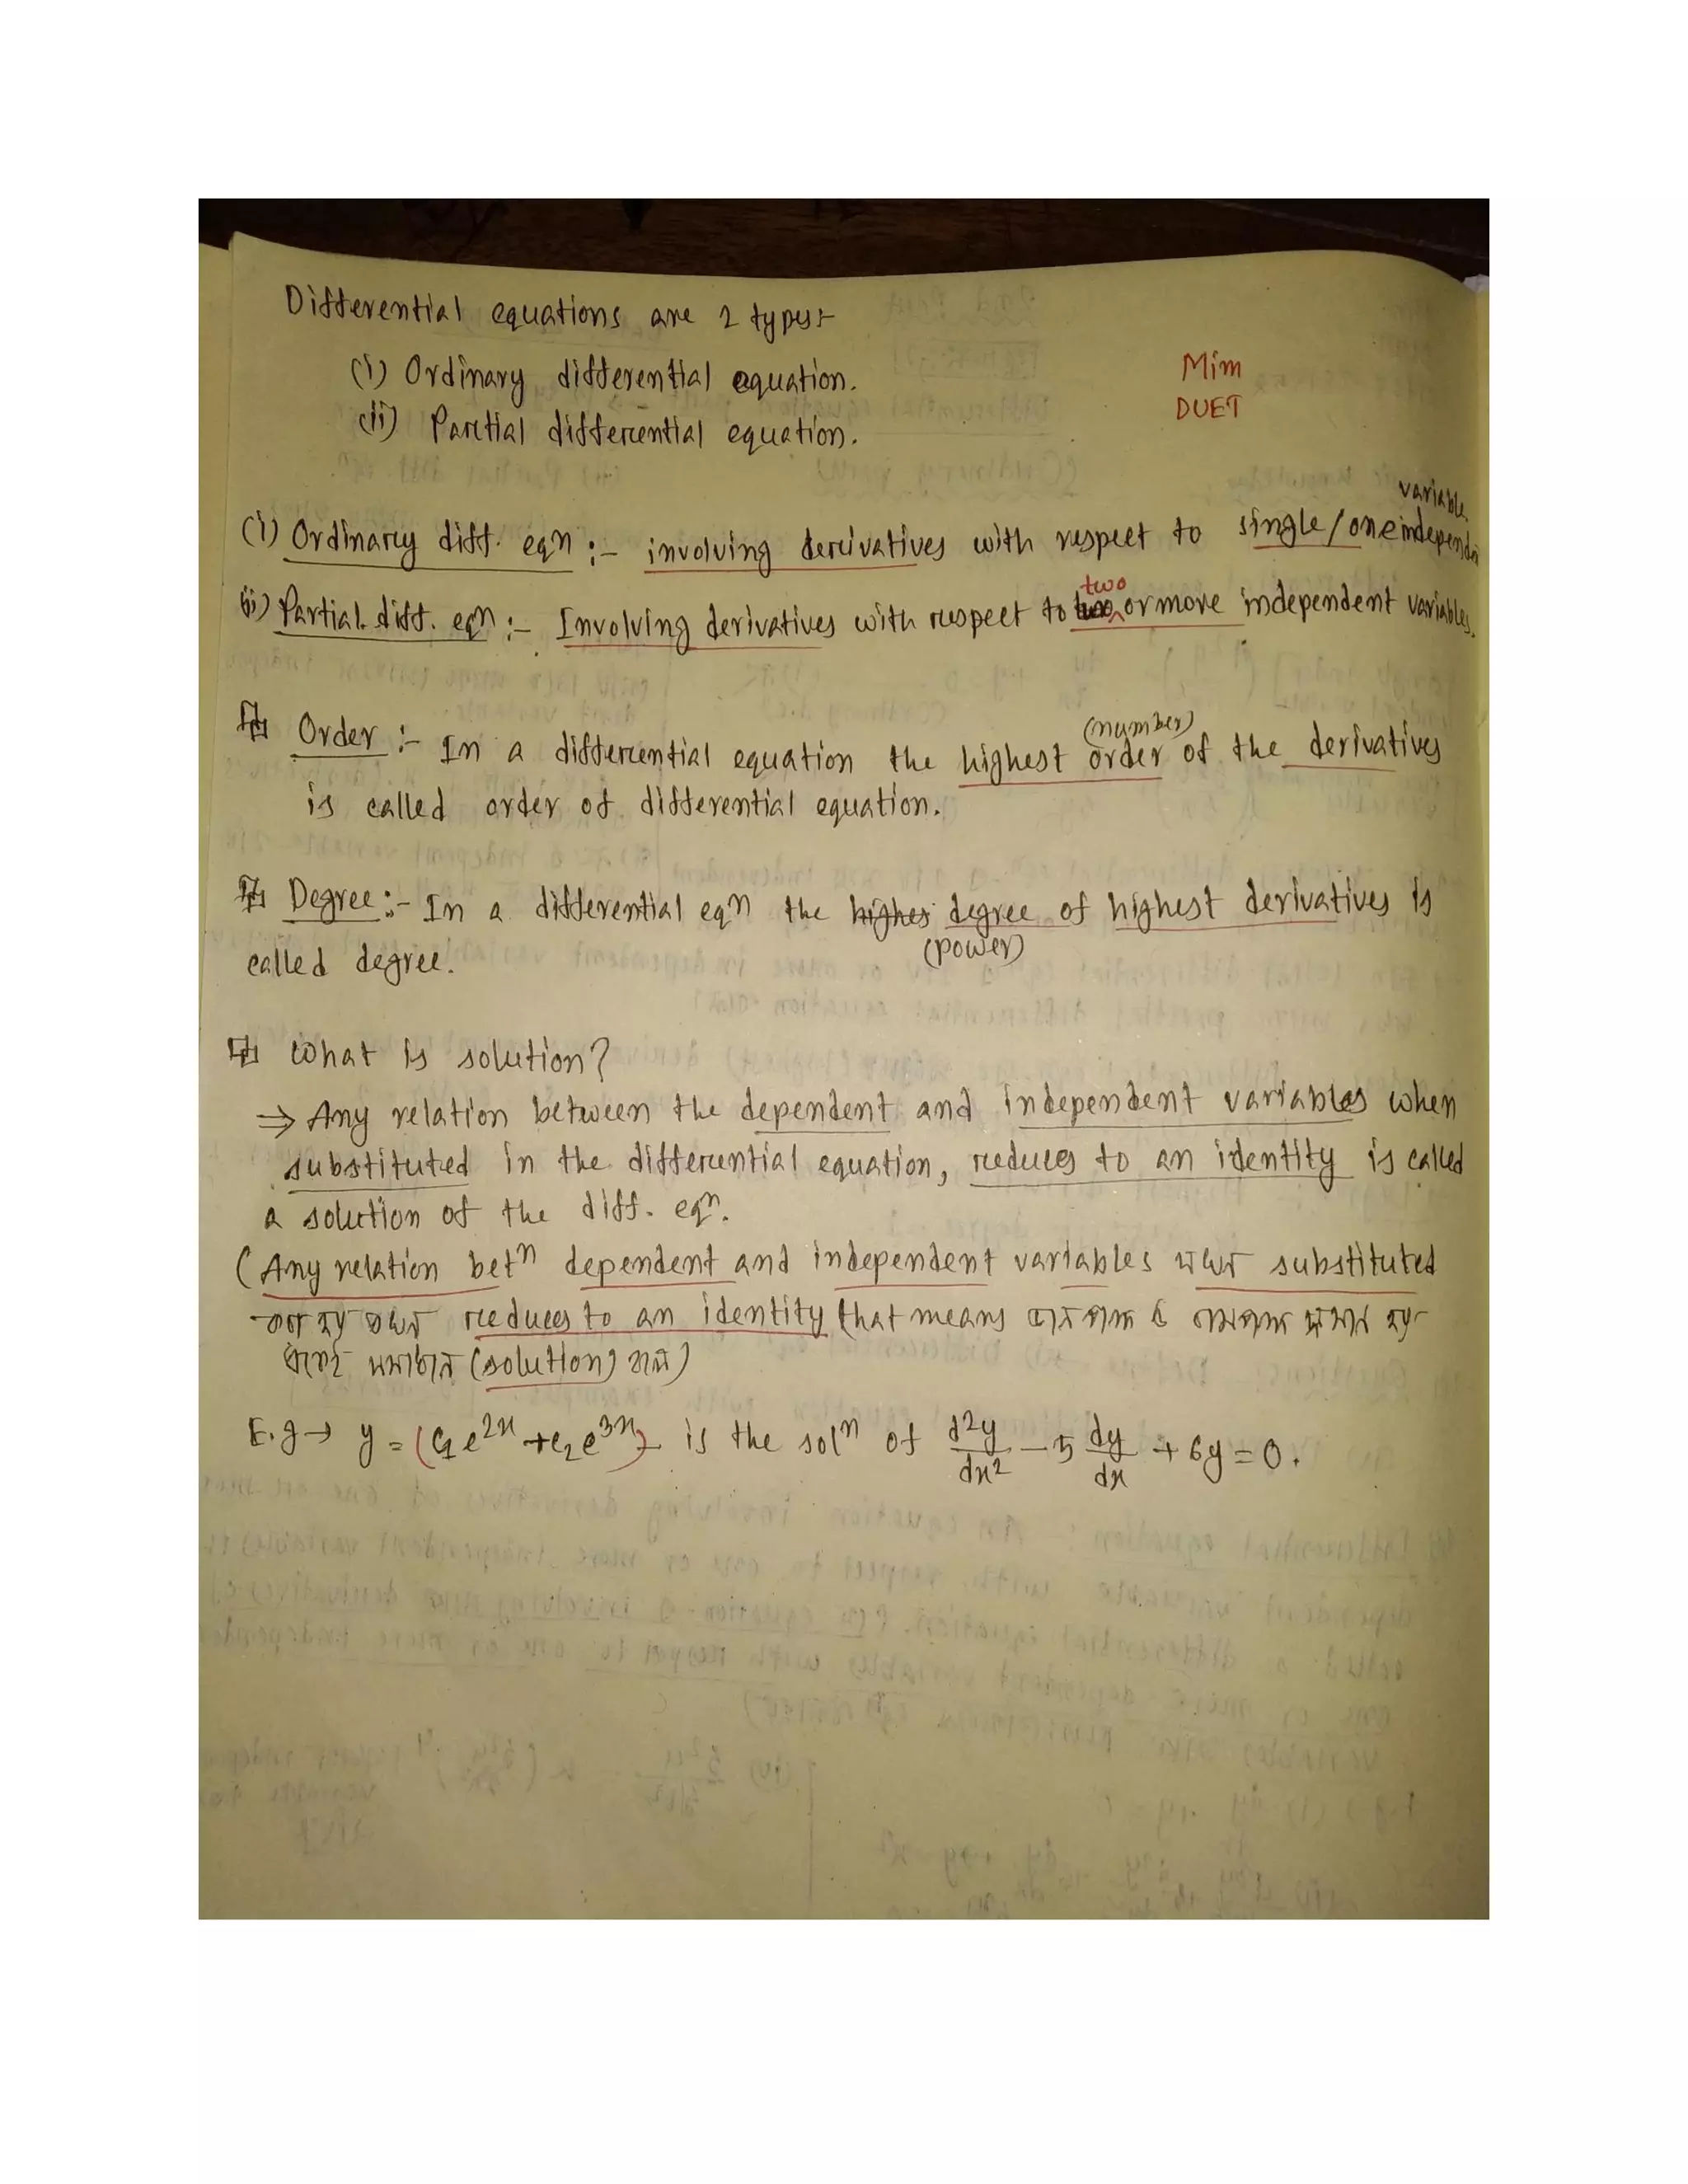 Differential equations are 2 types:-
(i) Ordinary differential equation.
(ii) Partial differential equation.
Mim
DUET
(i) Ordinary diff. eqn :- involving derivatives with respect to single/one independent variable.
(ii) Partial diff. eqn :- Involving derivatives with respect to two or more independent variables.
Order :- In a differential equation the highest order (number) of the derivatives
is called order of differential equation.
Degree :- In a differential eqn the higher degree (power) of highest derivatives is
called degree.
What is solution?
⇒ Any relation between the dependent and independent variables when
substituted in the differential equation, reduces to an identity is called
a solution of the diff. eqn.
(Any relation betn dependent and independent variables যখন substituted
করা হয় তখন reduces to an identity that means বামপক্ষ ও ডানপক্ষ সমান হয়
তাকেই সমাধান (solution) বলে)
E.g → y = (c₁e^2x + c₂e^3x) is the soln of d²y/dx² - 5 dy/dx + 6y = 0.